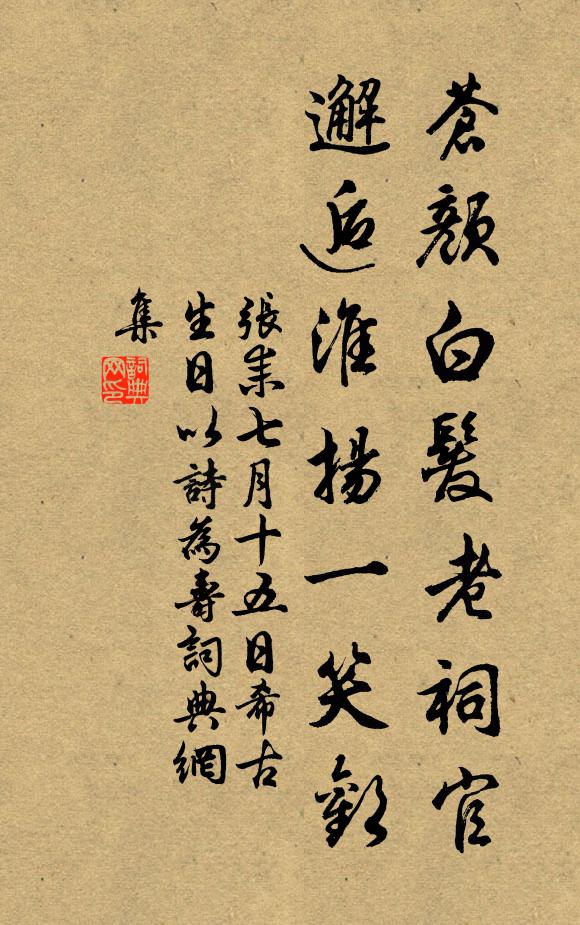 蒼顏白髮老祠官
邂逅淮揚一笑歡
張耒七月十五日希古
生日以詩為壽詞典網
集
詞典
网印